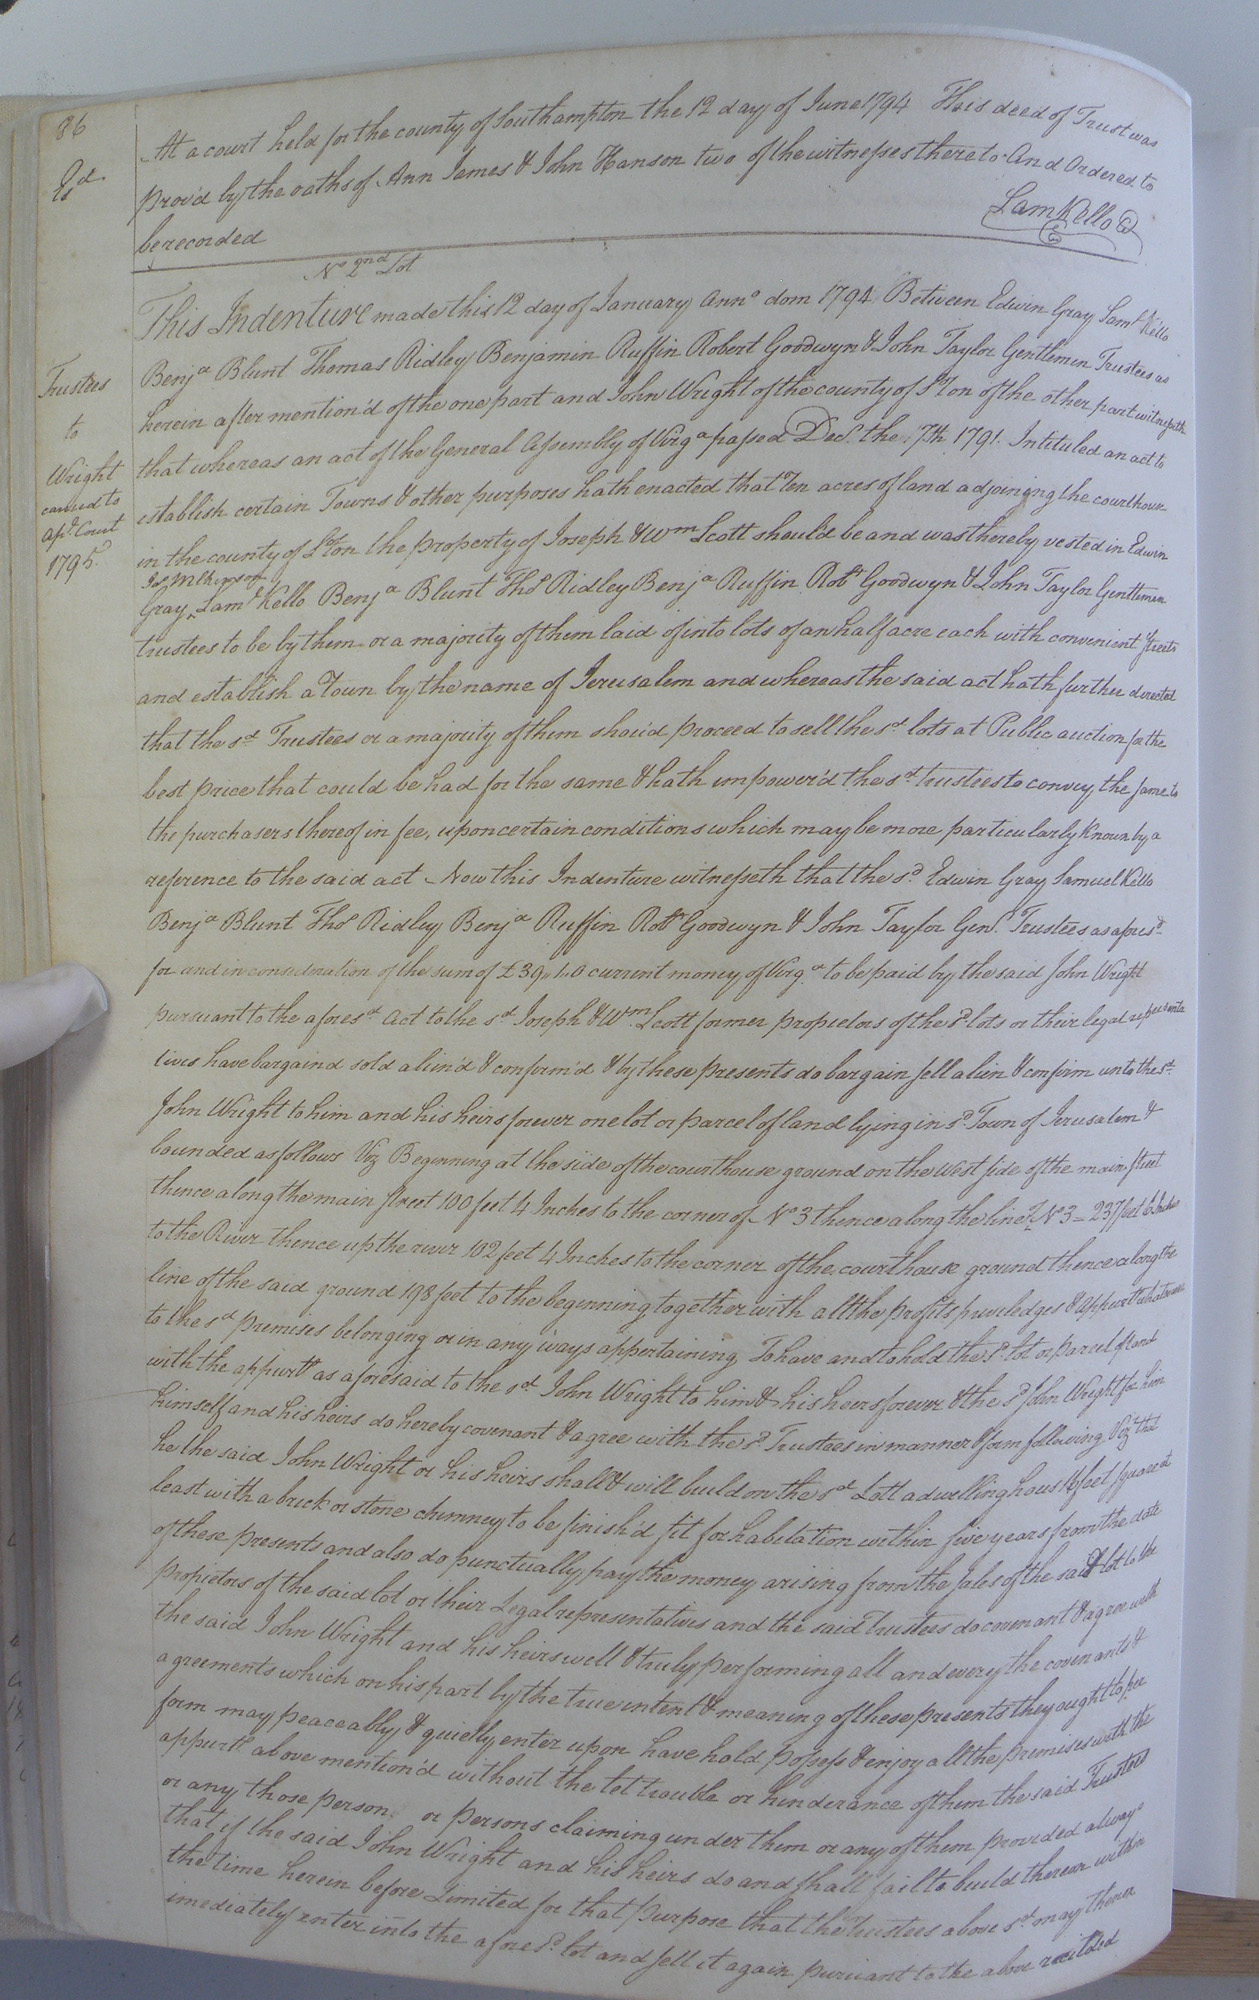 86
At a court held for the county of Southampton the 12 day of June 1794 This deed of Trust was
prov'd by the oaths of Ann James & John Hanson two of the witnesses thereto And Ordered to
be recorded
Sam Kello
No 2nd Lot
This Indenture made this 12 day of January Anno dom 1794 Between Edwin Gray Saml Kello
Benja Blunt Thomas Ridley Benjamin Ruffin Robert Goodwyn & John Taylor Gentlemen Trustees as
herein after mention'd of the one part and John Wright of the county of Sºton of the other part witnesseth
that whereas an act of the General Assembly of Virga passed Decr. the 17th 1791. Intituled an act to
establish certain Towns & other purposes hath enacted that Ten acres of land adjoining the courthouse
in the county of Sºton the property of Joseph & Wm Scott should be and was thereby vested in Edwin
Gray, Saml Kello Benja Blunt Thos Ridley Benja Ruffin Robt Goodwyn & John Taylor Gentlemen
trustees to be by them or a majority of them laid of into lots of an half acre each with convenient streets
and establish a Town by the name of Jerusalem and whereas the said act hath further directed
that the sd Trustees or a majority of them should proceed to sell the sd lots at Public auction for the
best price that could be had for the same & hath impower'd the sd trustees to convey the same to
the purchasers thereof in fee, upon certain conditions which may be more particularly known by a
reference to the said act Now this Indenture witnesseth that the sd. Edwin Gray Samuel Kello
Benja Blunt Thos Ridley Benja Ruffin Robt Goodwyn & John Taylor Gent. Trustees as aforesd.
for and in consideration of the sum of £39, 4.0 current money of Virga to be paid by the said John Wright
pursuant to the aforesd. Act to the sd Joseph & Wm. Scott former propietors of the sd lots or their legal representa
tives have bargaind sold alien'd & confirm'd & by these presents do bargain sell alien & confirm unto the sd.
John Wright to him and his heirs forever one lot or parcel of land lying in sd. Town of Jerusalem &
bounded as follows Viz Beginning at the side of the courthouse ground on the West side of the main street
thence along the main street 100 feet 4 Inches to the corner of No 3 thence along the line of No 3 - 237 feet 6 Inches
to the River thence up the river 102 feet 4 Inches to the corner of the courthouse ground thence along the
line of the said ground 198 feet to the beginning together with all the profits priviledges & appurts whatsoever
to the sd premises belonging or in any ways appertaining, To have and to hold the sd. lot or parcel of land
with the appurts as aforesaid to the sd. John Wright to him & his heirs forever & the sd John Wright for him
himself and his heirs do hereby covenant & agree with the sd. Trustees in manner & form following Viz that
he the said John Wright or his heirs shall & will build on the sd Lott a dwelling haus 16 feet square at
least with a brick or stone chimney to be finish'd fit for habitation within five years from the date
of these presents and also do punctually pay the money arising from the sales of the said lot to the
propietors of the said lot or their Legal representatives and the said trustees do covenant & agree with
the said John Wright and his heirs well & truly performing all and every the covenants &
agreements which on his part by the true intent & meaning of these presents they ought to per
form may peaceably & quietly enter upon have hold possess & enjoy all the premises with the
appurts above mention'd without the let trouble or hinderance of them the said Trustees
or any those person or persons claiming under them or any of them provided always
that if the said John Wright and his heirs do and shall fail to build thereon within
the time herein before Limited for that purpose that the trustees above sd may thence
imediately enter into the aforesd. lot and sell it again pursuant to the above recited
Trustees
to
Wright
carried to
Court
1795